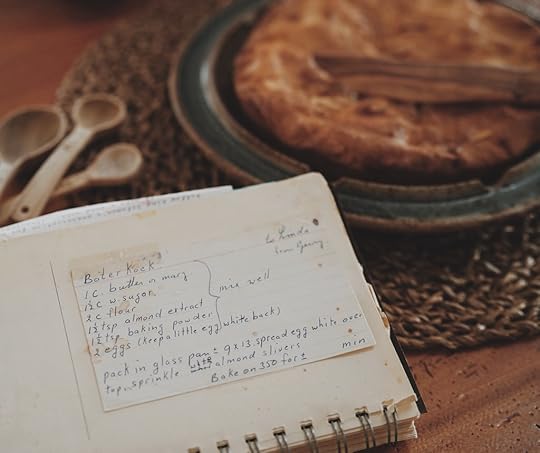 to Linda
from Gerry
Boter Koek
1 C. butter or marg
1½ C w sugar
2 C flour
1½ tsp almond extract
1½ tsp baking powder
2 eggs (keep a little egg white back)
mix well
pack in glass pan ± 9x13 spread egg white over
top. sprinkle with almond slivers
Bake on 350 for ± min